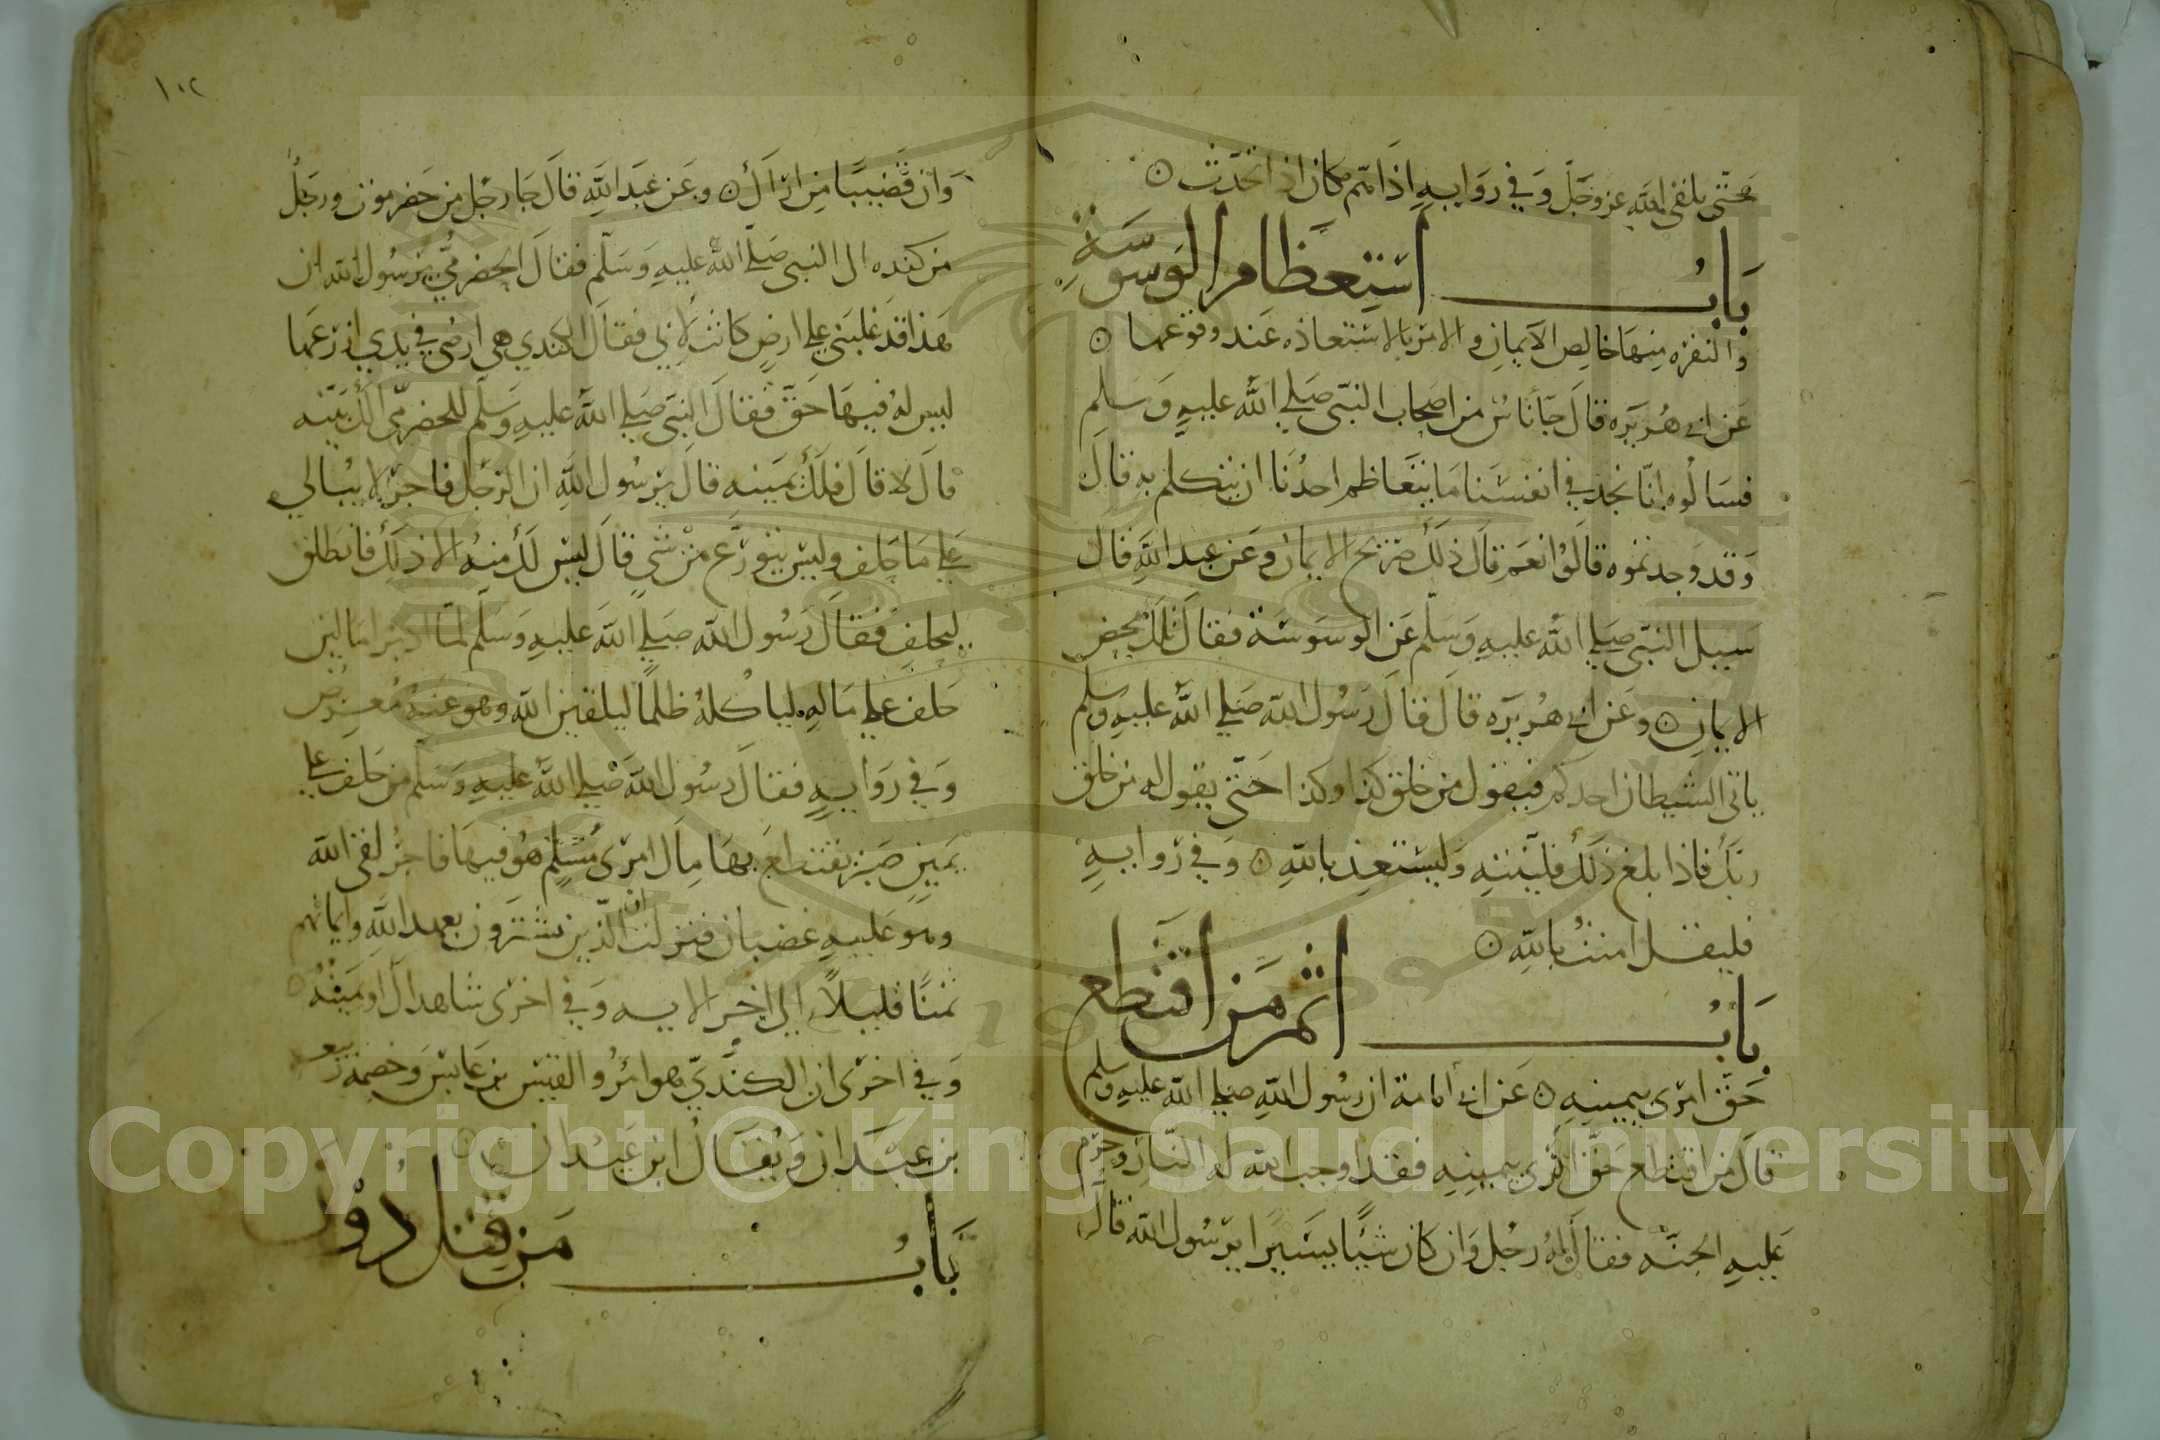 حتى يلقى الله عز وجل وفي رواية اذا همّ مكان اذا تحدث ن
باب استعظام الوسوسة
والنفرة منها خالص الايمان والامر بالاستعاذه عند وقوعها ن
عن ابي هريره قال جا ناس من اصحاب النبي صلي الله عليه وسلم
فسالوه انا نجد في انفسنا ما يتعاظم احدنا ان يتكلم به قال
وقد وجدتموه قالوا نعم قال ذلك صريح الايمان وعن عبد الله قال
سيل النبي صلي الله عليه وسلم عن الوسوسة فقال تلك محض
الايمان ن وعن ابي هريره قال قال رسول الله صلي الله عليه وسلم
ياتي الشيطان احدكم فيقول من خلق كذا وكذا حتى يقول له من خلق
ربك فاذا بلغ ذلك فلينته وليستعذ بالله ن وفي روايه
فليقل امنت بالله ن
باب اثم من اقتطع
حق امرى بيمينه ن عن ابي أمامة ان رسول الله صلي الله عليه وسلم
قال من اقتطع حق امرى بيمينه فقد اوجب الله له النار وحرم
عليه الجنه فقال له رجل وان كان شيئا يسيرا يرسول الله قال
١٠٢
وان قضيبا من اراك ن وعن عبد الله قال جا رجل من حضرموت ورجل
من كنده الى النبي صلي الله عليه وسلم فقال الحضرمي يرسول الله ان
هذا قد غلبني علي ارض كانت لابي فقال الكندي هي ارضي في يدي ازرعها
ليس له فيها حق فقال النبي صلي الله عليه وسلم للحضرمي الك بينه
قال لا قال فلك يمينه قال يرسول الله ان الرجل فاجر لا يبالي
علي ما حلف وليس يتورع من شي قال ليس لك منه الا ذلك فانطلق
ليحلف فقال رسول الله صلي الله عليه وسلم لما ادبر اما لين
حلف علي ماله لياكله ظلما ليلقين الله وهو عنه معرض
وفي رواية فقال رسول الله صلي الله عليه وسلم من حلف علي
يمين صبر يقتطع بها مال امرى مسلم هو فيها فاجر لقي الله
وهو عليه غضبان فنزلت ان الذين يشترون بعهد الله وايمانهم
ثمنا قليلا الي اخر الايه وفي اخرى شاهداك او يمينه ن
وفي اخرى ان الكندي هو امرؤ القيس بن عابس وخصمه ربيعه
بن عبدان ويقال ابن عيدان
باب من قتل دون
Copyright © King Saud University